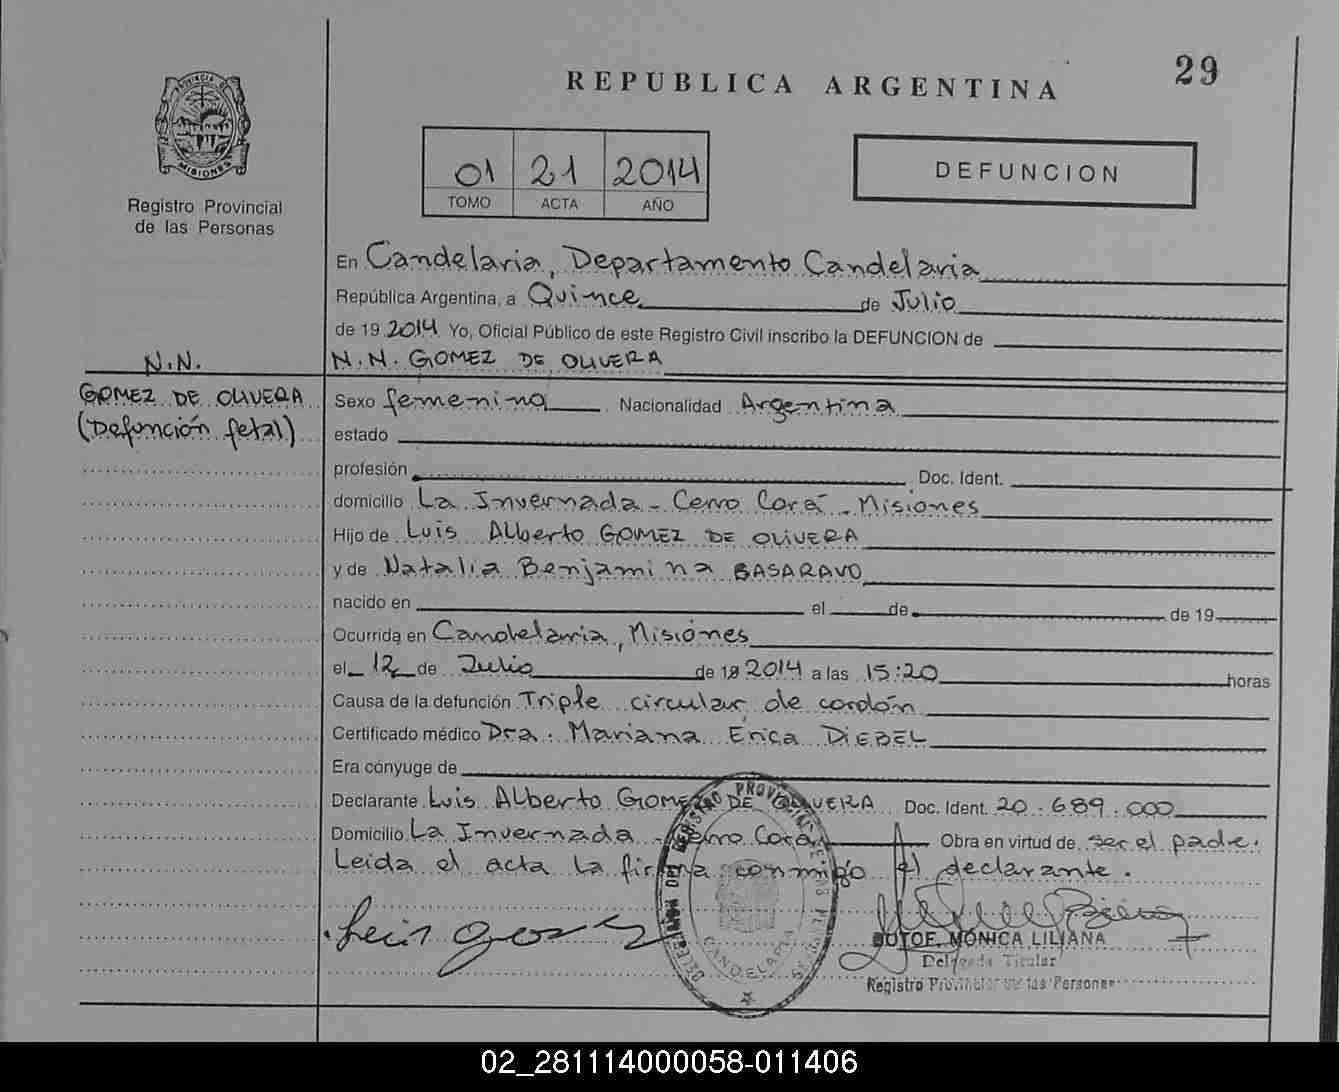 29
REPUBLICA ARGENTINA
PROVINCIA DE
MISIONES
Registro Provincial
de las Personas
01 21 2014
TOMO ACTA AÑO
DEFUNCION
En Candelaria, Departamento Candelaria
República Argentina, a Quince de Julio
de 19 2014 Yo, Oficial Público de este Registro Civil inscribo la DEFUNCION de
N.N. GOMEZ DE OLIVERA
N.N.
GOMEZ DE OLIVERA
(Defunción fetal)
Sexo femenino Nacionalidad Argentina
estado
profesión Doc. Ident.
domicilio La Invernada - Cerro Corá - Misiones
Hijo de Luis Alberto GOMEZ DE OLIVERA
y de Natalia Benjamina BASARAVO
nacido en el de de 19
Ocurrida en Candelaria, Misiones
el 12 de Julio de 19 2014 a las 15:20 horas
Causa de la defunción Triple circular de cordón
Certificado médico Dra. Mariana Erica DIEBEL
Era cónyuge de
Declarante Luis Alberto GOMEZ DE OLIVERA Doc. Ident. 20.689.000
Domicilio La Invernada - Cerro Corá Obra en virtud de ser el padre.
Leida el acta la firma conmigo el declarante.
DELEGACION DEL REGISTRO PROVINCIAL DE LAS PERSONAS
CANDELARIA
Luis
MONICA LILIANA
Delegada Titular
Registro Provincial de las Personas
02_281114000058-011406